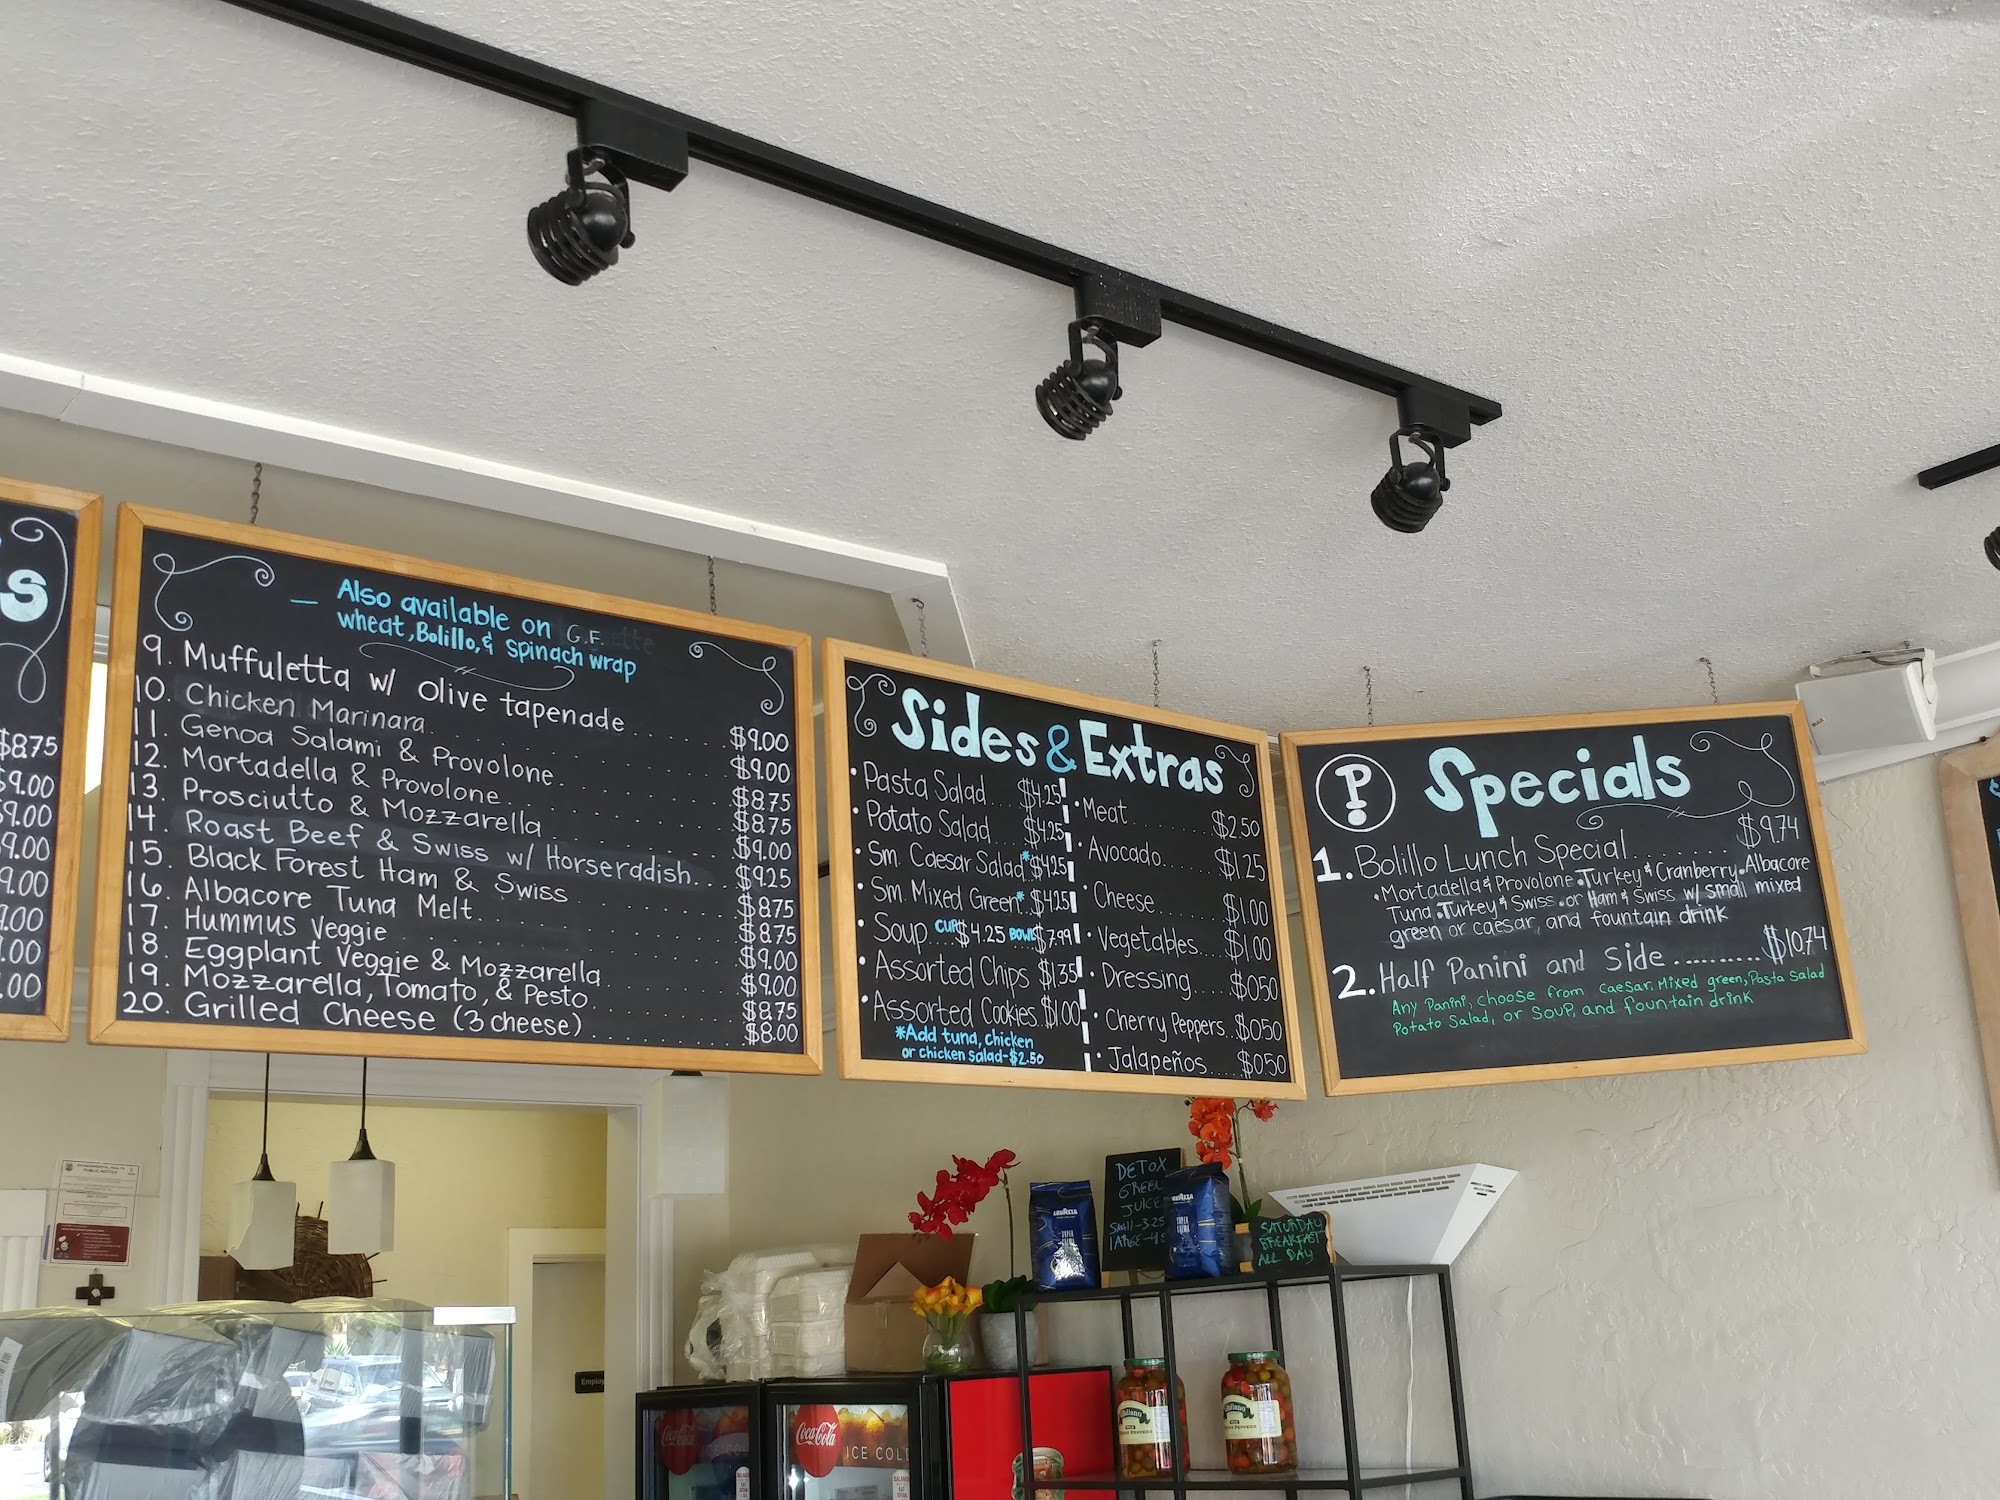 s
$8.75
$9.00
$9.00
9.00
9.00
9.00
.00
.00
Also available on G.F.
wheat, Bolillo, & spinach wrap
9. Muffuletta w/ olive tapenade $9.00
10. Chicken Marinara $9.00
11. Genoa Salami & Provolone $8.75
12. Mortadella & Provolone $8.75
13. Prosciutto & Mozzarella $9.00
14. Roast Beef & Swiss w/ Horseradish $9.25
15. Black Forest Ham & Swiss $8.75
16. Albacore Tuna Melt $8.75
17. Hummus Veggie $9.00
18. Eggplant Veggie & Mozzarella $9.00
19. Mozzarella, Tomato, & Pesto $8.75
20. Grilled Cheese (3 cheese) $8.00
Sides & Extras
• Pasta Salad $4.25
• Potato Salad $4.25
• Sm. Caesar Salad* $4.25
• Sm. Mixed Green* $4.25
• Soup CUP $4.25 BOWL $7.99
• Assorted Chips $1.35
• Assorted Cookies $1.00
*Add tuna, chicken
or chicken salad-$2.50
• Meat $2.50
• Avocado $1.25
• Cheese $1.00
• Vegetables $1.00
• Dressing $0.50
• Cherry Peppers $0.50
• Jalapeños $0.50
P! Specials
1. Bolillo Lunch Special $9.74
• Mortadella & Provolone • Turkey & Cranberry • Albacore
Tuna • Turkey & Swiss • or Ham & Swiss w/ small mixed
green or caesar, and fountain drink
2. Half Panini and Side $10.74
Any Panini, choose from caesar, mixed green, Pasta Salad
Potato Salad, or Soup, and fountain drink
ENVIRONMENTAL HEALTH
PUBLIC NOTICE
DETOX
GREEN
JUICE
Small-3.25
LARGE-4
LAVAZZA
SUPER
CREMA
LAVAZZA
SUPER
CREMA
SATURDAY
BREAKFAST
ALL DAY
Employ
Coca-Cola
ICE COL
Coca-Cola
ICE COLD